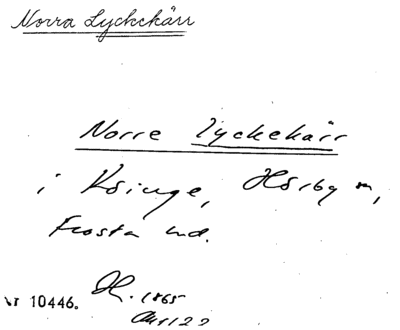 Norra Lyckekärr
Norre Lyckekärr
i Köinge, Hörby sn,
Frosta hd.
10446. H. 1865